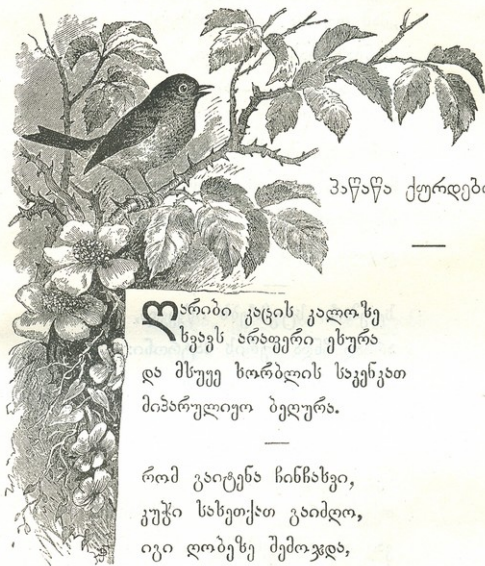 პაწაწა ქურდები
ღარიბი კაცის კალოზე
ხვავს არაფერი ესურა
და მსუყე ხორბლის საკენკათ
მიპარულიყო ბეღურა.
რომ გაიტენა ჩინჩახვი,
კუჭი სახეთქათ გაიძღო,
იგი ღობეზე შემოჯდა,